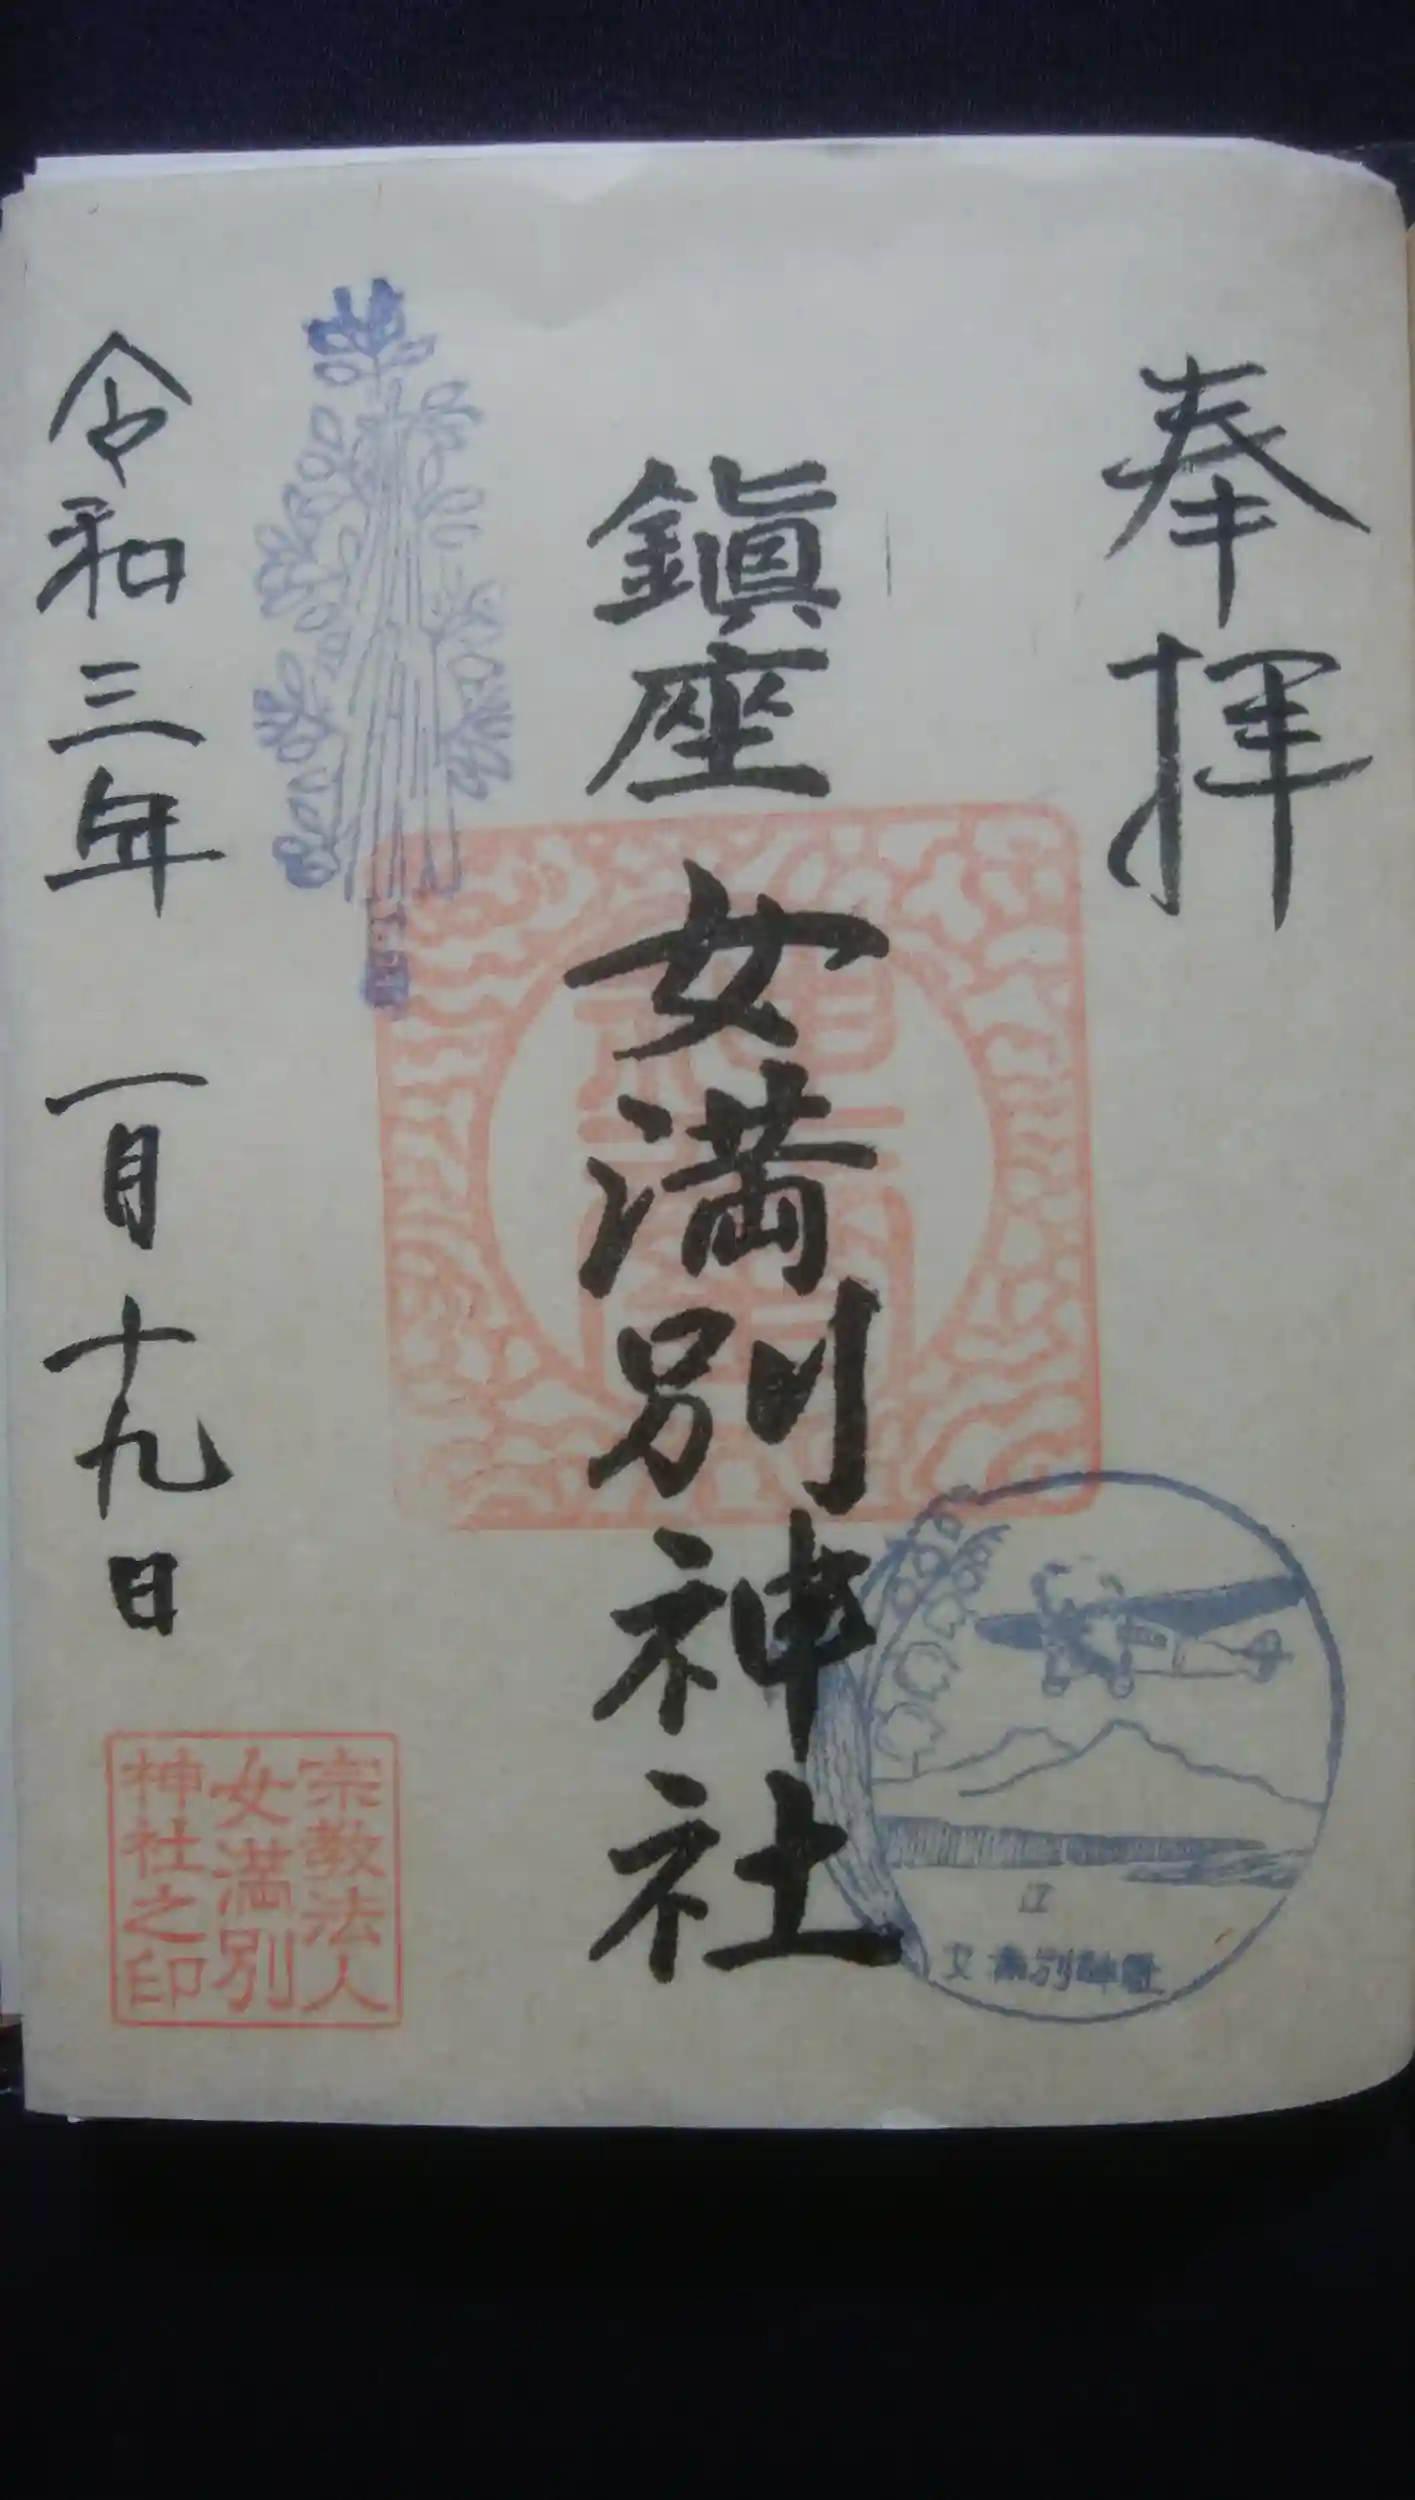 奉拝
鎭座 女満別神社
令和三年 一月十九日
宗教法人
女満別
神社之印
女満別神社